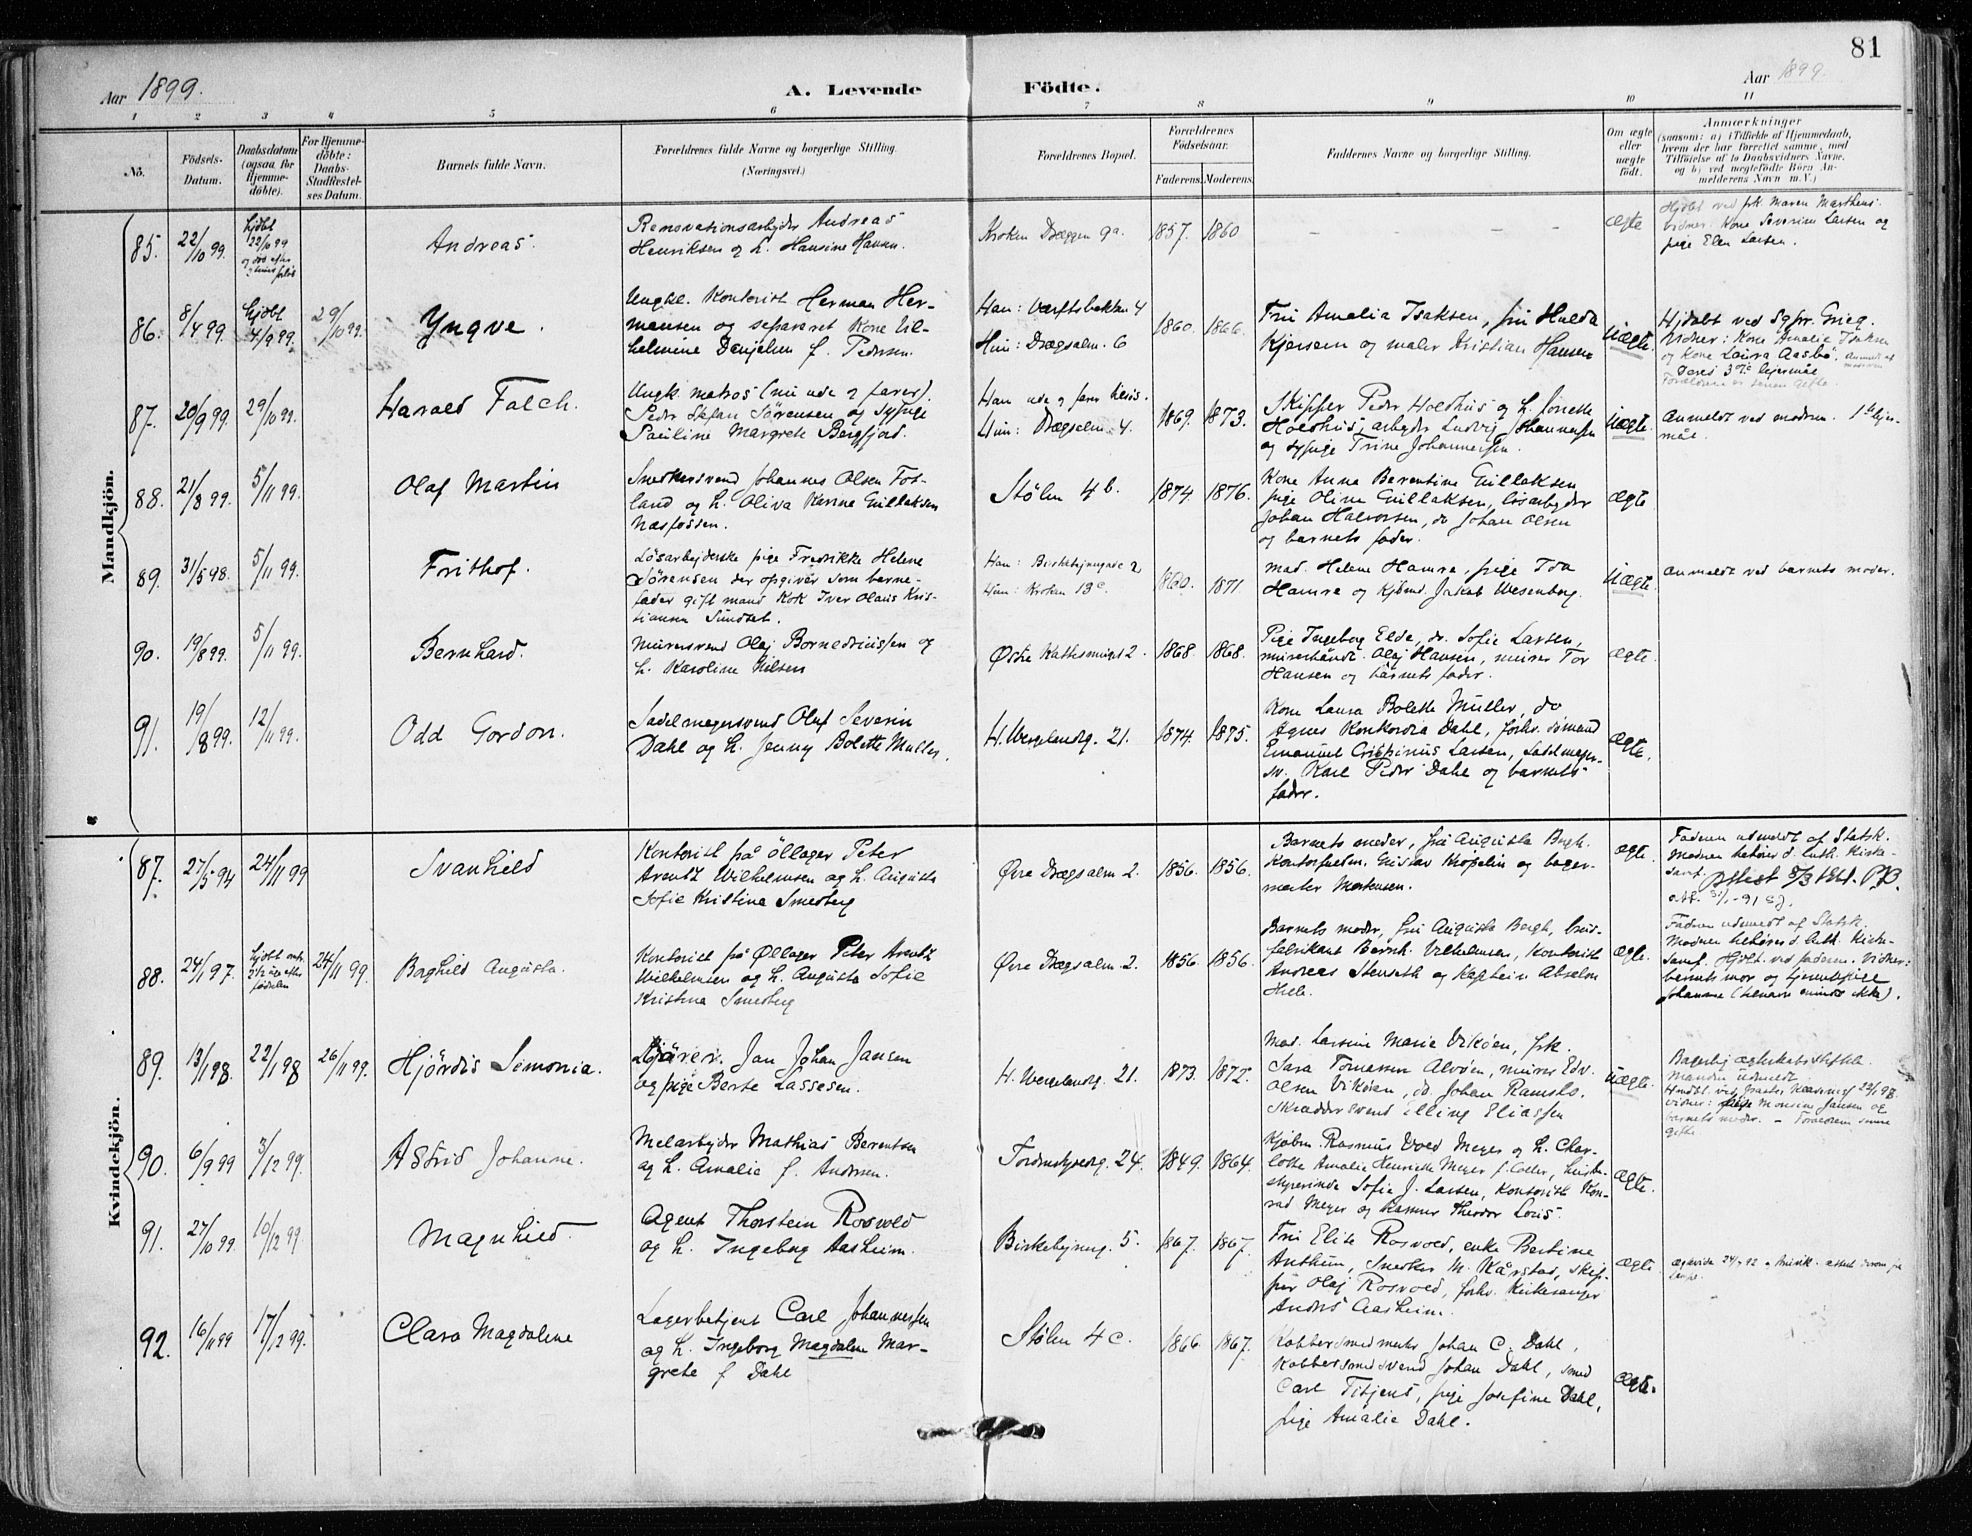 81
Aar 1899.
A. Levende Födte.
Aar 1899.
1 2 3 4 5 6 7 8 9 10 11
No.
Födsels-
Datum.
Daabsdatum
(ogsaa for
Hjemme-
döbte).
For Hjemme-
döbte:
Daabs-
Stadfæstel-
ses Datum.
Barnets fulde Navn.
Forældrenes fulde Navne og borgerlige Stilling.
(Næringsvei.)
Forældrenes Bopæl.
Forældrenes
Födselsaar.
Faderens. Moderens.
Faddernes Navne og borgerlige Stilling.
Om ægte
eller
uægte
födt.
Anmærkninger
(saasom: a) i Tilfælde af Hjemmedaab,
hvem der har forrettet samme, med
Tilföielse af to Daabsvidners Navne,
og b) ved uægtefödte Börn An-
melderens Navn m. V.)
Mandkjön.
85. 22/10 99. Hjdbt 22/10 99
Andreas.
Renovationsarbejder Andreas
Henriksen og h. Hansine Hansen.
Kroken Dræggen 9a. 1857. 1860
ægte
Vidner: Kone Severine Larsen og
pige Elen Larsen.
86. 8/4 99. Hjdbt 4/9 99. 29/10 99.
Yngve.
Ungkl. Kontorist Herman Her-
mansen og separeret Kone Vil-
helmine Danielsen f. Pedersen.
Han: Værftsbakken 4
Hun: Drægsalm. 6
1860. 1866.
Fru Amalia Isaksen, fru Hulda
Kjersem og maler Kristian Hansen
uægte
Hjdøbt ved Sgpr. Grieg.
Vidner: Kone Amalie Isaksen
og Kone Laura Aasbö.
Deres 3die lejermål
Forældrene er senere gifte.
87. 20/9 99. 29/10 99.
Harald Falch.
Ungk. matros (nu ude å farer).
Peder Stefan Sörensen og sypige
Pauline Margrete Bergfjord.
Hun: Drægsalm. 4.
1869. 1873.
Skipper Peder Holdhus og h. Jonette
Holdhus, arbejder Ludvig Johannessen
og sypige Trine Johannessen.
uægte
Anmeldt ved modren. 1ste lejer-
mål.
88. 21/8 99. 5/11 99.
Olaf Martin
Snedkersvend Johannes Olsen Fos-
land og h. Oliva Karina Gullaksen
Næsfossen.
Stölen 4b. 1874 1876.
Kone Anna Berentine Gullaksen
pige Oline Gullaksen, lösarbejder
Johan Halvorsen, do Johan Olsen
og barnets fader.
ægte
89. 31/5 98. 5/11 99.
Frithof.
Lösarbejderske pige Fredrikke Helene
Sörensen der opgiver som barne-
fader gift mand Kok Iver Olaus Kris-
tiansen Sundset.
Han: Birkebejnergade 2
Hun: Kroken 13c.
1860. 1871
Mad. Helene Hamre, pige Ida
Hamre og Kjöbmd. Jakob Wesenberg.
uægte.
Anmeldt ved barnets moder.
90. 19/8 99. 5/11 99.
Bernhard.
Murersvend Olaj Bornedriussen og
h. Karoline Nilsen
Østre Kattesmuget 2. 1868 1868.
Pige Ingeborg Elde, do. Sofie Larsen,
murerhåndt. Olaj Hansen, murer Tor
Hansen og barnets fader.
ægte.
91. 19/8 99. 12/11 99.
Odd Gordon.
Sadelmagersvend Oluf Severin
Dahl og h. Jenny Bolette Muller.
H. Wergelandsg. 21. 1874. 1875.
Kone Laura Bolette Müller, do
Agnes Konkordia Dahl, forhv. sömand
Emanuel Crispinus Larsen, Sadelmager-
sv. Karl Peder Dahl og barnets
fader.
ægte.
Kvindekjön.
87. 27/5 94 24/11 99
Svanhild
Kontorist på öllager Peter
Arentz Wilhelmsen og h. Augusta
Sofie Kristina Smedberg
Øvre Drægsalm 2. 1856. 1856.
Barnets moder, fru Augusta Bergh.
Kontorfuldm. Gustav Kropelin og bager-
mester Mortensen.
ægte.
Fadren udmeldt af Statsk.
Modren tilhörer d. luth. Kirke-
samf.
Attest 5/3 1861. PB.
att. 31/1-91 SJ.
88. 24/1 97. 24/11 99.
Baghild Augusta.
Kontorist på Øllager Peter Arentz
Wilhelmsen og h. Augusta Sofie
Kristina Smedberg
Øvre Drægsalm. 2. 1856. 1856.
Barnets moder, fru Augusta Bergh, brus-
fabrikant Bernh. Vilhelmsen, Kontorist
Andreas Stenseth og Kaptein Absalon
Hile.
ægte.
Fadren udmeldt af Statsk.
Modren tilhörer d. luth. Kirke-
samf. Hjdbt. ved fadren. Vidner:
barnets mor og tjenestepige
Johanne (tilnavn mindes ikke).
89. 13/1 98. 22/1 98 26/11 99.
Hjördis Simonia.
Jan Johan Jansen
og pige Berte Lassesen.
H. Wergelandsg. 21. 1873. 1872.
Mad. Larsine Marie Vikøen, frk.
Sara Tomasson Alvøen, murer Edv.
Olsen Vikøen, do. Johan Ramslo.
Skræddersvend Elling Eliassen
uægte.
Manden udmeldt.
Vidner: pige Monsine Jansen og
barnets moder. – Forældrene senere
gifte
90. 6/9 99 3/12 99.
Astrid Johanne.
Melarbejder Mathias Berentsen
og h. Amalie f. Andersen.
Tordenskjoldsg. 24. 1849. 1864.
Kjöbm. Rasmus Woed Meyer og h. Char-
lotte Amalie Henriette Meyer f. Coller, hus-
styrerinde Sofie J. Larsen, Kontorist Kon-
rad Meyer og Rasmus Theodor Loris.
ægte.
91. 27/10 99 10/12 99
Magnhild.
Agent Thorstein Rosvold
og h. Ingeborg Aasheim.
Birkebejnerg. 5. 1867. 1867.
Fru Elise Rosvold, enke Bertine
Anthun, Snedker M. Kårstad, skip-
per Olaj Rosvold, forhv. Kirkesanger
Anders Aasheim.
ægte
92. 16/11 99 17/12 99.
Clara Magdalene
Lagerbetjent Carl Johannessen
og h. Ingeborg Magdalene Mar-
grete f Dahl
Stölen 4c. 1866. 1867.
Kobbersmedmester Johan C. Dahl,
Kobbersmedsvend Johan Dahl, smed
Carl Titjens, pige Josefine Dahl,
pige Amalie Dahl.
ægte.